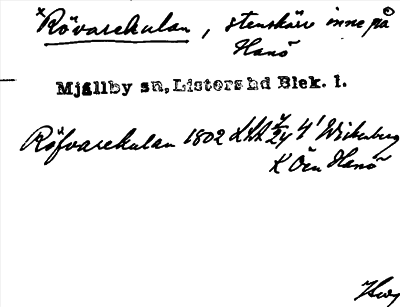 *Rövarekulan, stenskär inne på
Hanö
Mjällby sn, Listers hd Blek. l.
Röfvarekulan 1802 LSA 4' Wirkenberg
K Ön Hanö